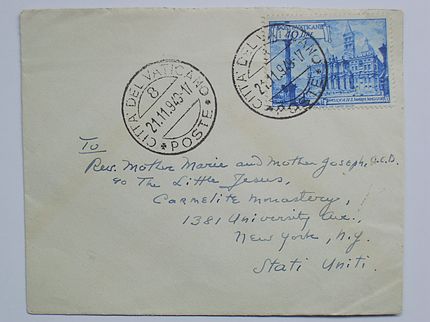 CITTA' DEL VATICANO
8
21.11.949-17
* POSTE *
CITTA' DEL VATICANO
21.11.949-17
* POSTE *
POSTE VATICANE
To
Rev. Mother Marie and Mother Joseph, O.C.D.
℅ The Little Jesus,
Carmelite Monastery,
1381 University Ave.,
New York, N.Y.
Stati Uniti.